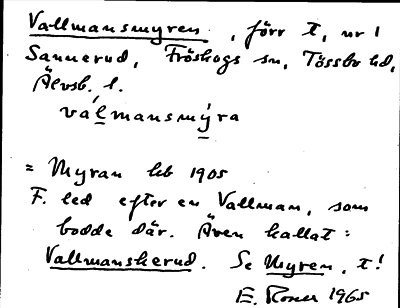 Vallmansmyren, förr t, nr 1
Sannerud, Fröskogs sn, Tössbo hd,
Älvsb. l.
válmansmýra
= Myran hb 1905
F. led efter en Vallman, som
bodde där. Även kallat:
Vallmanskerud. Se Myren, t!
E. Rosen 1965